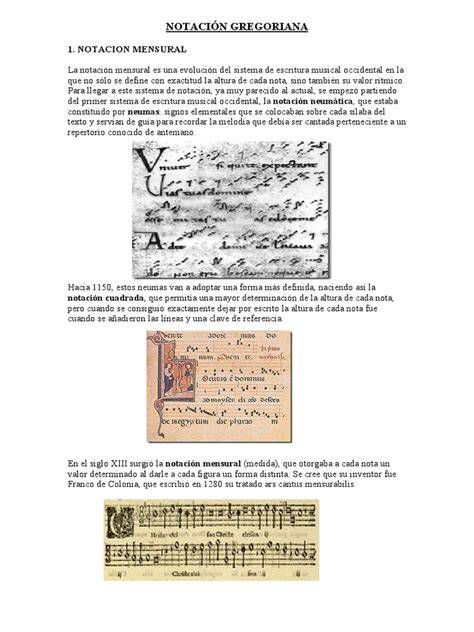 NOTACIÓN GREGORIANA
1. NOTACION MENSURAL
La notación mensural es una evolución del sistema de escritura musical occidental en la
que no sólo se define con exactitud la altura de cada nota, sino también su valor rítmico.
Para llegar a este sistema de notación, ya muy parecido al actual, se empezó partiendo
del primer sistema de escritura musical occidental, la notación neumática, que estaba
constituido por neumas: signos elementales que se colocaban sobre cada sílaba del
texto y servían de guía para recordar la melodía que debía ser cantada perteneciente a un
repertorio conocido de antemano.
si quite expectant
Hacia 1150, estos neumas van a adoptar una forma más definida, naciendo así la
notación cuadrada, que permitía una mayor determinación de la altura de cada nota,
pero cuando se consiguió exactamente dejar por escrito la altura de cada nota fue
cuando se añadieron las líneas y una clave de referencia.
num.
ad moysen
dominus de pharao
En el siglo XIII surgió la notación mensural (medida), que otorgaba a cada nota un
valor determinado al darle a cada figura un forma distinta. Se cree que su inventor fue
Franco de Colonia, que escribió en 1280 su tratado ars cantus mensurabilis.
son Christe eleison ij
ij ij